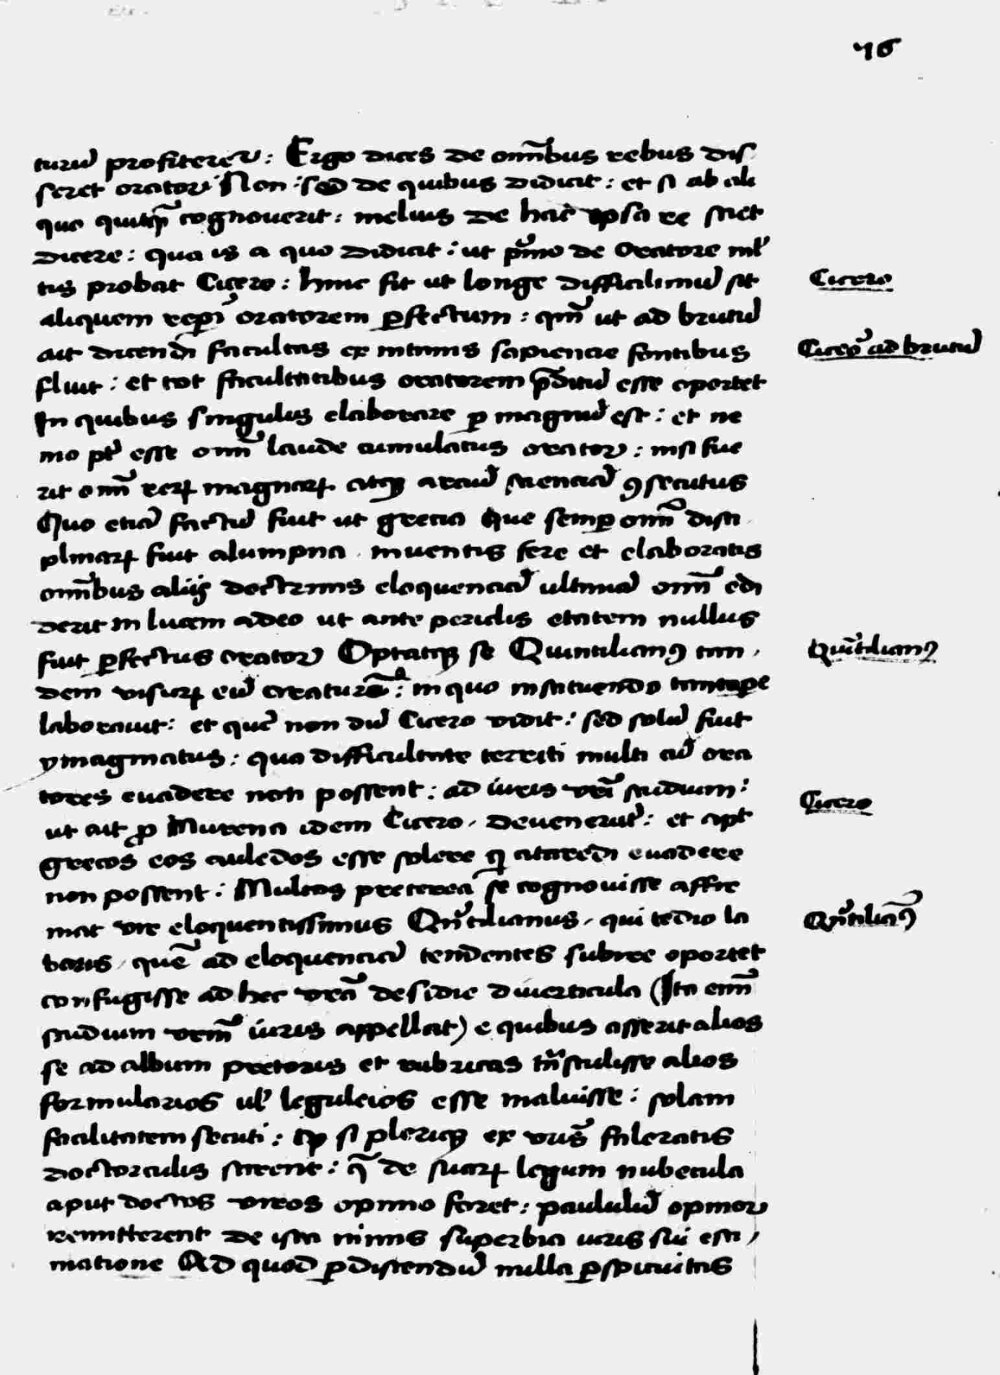 76
turū profiterer: Ergo dices de om̄ibus rebus dis
seret orator Non: sed de quibus didicit: et si ab ali
quo quitq̄ȝ cognouerit: melius de hac ipsa re sciet
dicere: qua is a quo didicit: ut p̄mo de Oratore ml'
tis probat Cicero: hinc fit ut longe difficilimū sit
Cicero
aliquem repi͂ oratorem ꝑfectum: qm̄ ut ad brutū
ait dicendi facultas ex intimis sapiencie fontibus
Cicero ad brutū
fluit: et tot facultatibus oratorem p̄ditū esse oportet
In quibus singulis elaborare ꝑ magnū est: et ne
mo pt' esse om̄i laude cumulatus orator: nisi fue
rit om̄ reꝝ magnaꝝ atqȝ arciū sciencia͞ ꝯsecutus
Quo etia͞ factū fuit ut grecia que semꝑ om̄ disci
plinaꝝ fuit alumpna. inuentis fere et elaboratis
om̄ibus alijs doctrinis eloquencia͞ ultima͞ om̄ edi
derit in lucem adeo ut ante periclis etatem nullus
fuit ꝑfectus orator Optatqȝ se Quintilianꝰ tan,
Qui͞tilianꝰ
dem visuꝝ eū in quo instituendo tantope
laborauit: et que͞ non dū Cicero vidit: sed solū fuit
ymaginatus: qua difficultate territi multi cū ora
tores euadere non possent: ad iuris vr̄i studium:
Cicero
ut ait ꝓ Murena idem Cicero, deuenerūt: et apt
grecos eos auledos esse solere qͥ citaredi euadere
non possent: Multos preterea se cognouisse affir
mat vir eloquentissimus Qn̄tilianus, qui tedio la
Qn̄tilianꝰ
boris, que͞ ad eloquencia͞ tendentes subire oportet
confugisse ad hec vr̄a desidie diuerticula (Ita enī
studium vr̄m iuris appellat) e quibus asserit alios
se ad album pretoris et rubricas tn̄stulisse alios
formularios ul' leguleios esse maluisse: solam
facilitatem secuti: qȝ si pleriqȝ ex vr̄is faleratis
doctorculis scirent: q̄ de suaꝝ legum nubecula
aput doctos viros opinio foret: paululū opinor
remitterent de ista nimis superbia iuris sui esti,
matione Ad quod ꝑdiscendū nulla ꝑspicuitas